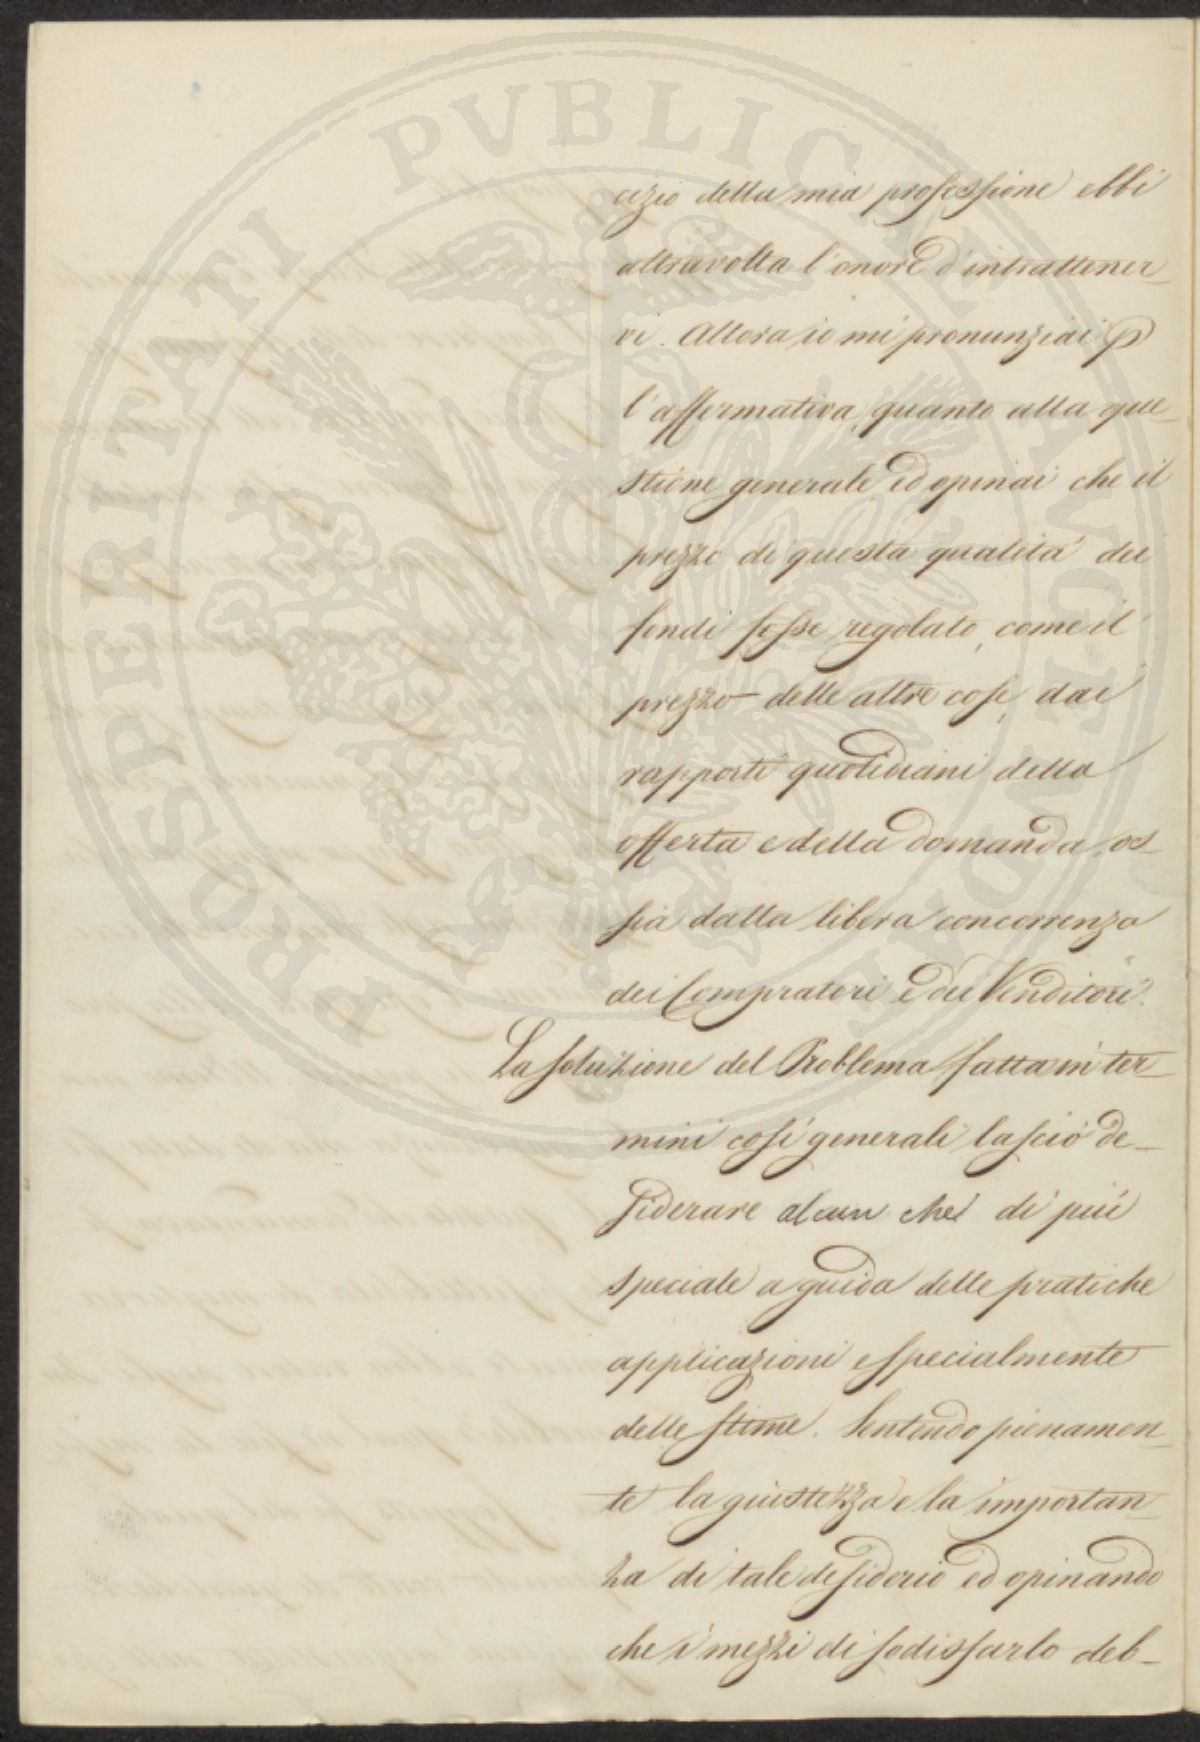 PROSPERITATI PVBLICAE AVGENDAE
cizio della mia professione ebbi
altravolta l'onore d'intrattener-
vi. Allora io mi pronunziai p
l'affermativa, quanto alla que-
stione generale, ed opinai che il
prezzo di questa qualità dei
fondi fosse regolato, come il
prezzo delle altre cose, dai
rapporti quotidiani della
offerta e della domanda, os-
sia dalla libera concorrenza
dei Compratori e dei Venditori.
La soluzione del Problema fatta in ter-
mini così generali lasciò de-
siderare alcun che di più
speciale a guida delle pratiche
applicazioni e specialmente
delle stime. Sentendo pienamen-
te la giustezza e la importan-
za di tale desiderio ed opinando
che i mezzi di sodisfarlo deb-